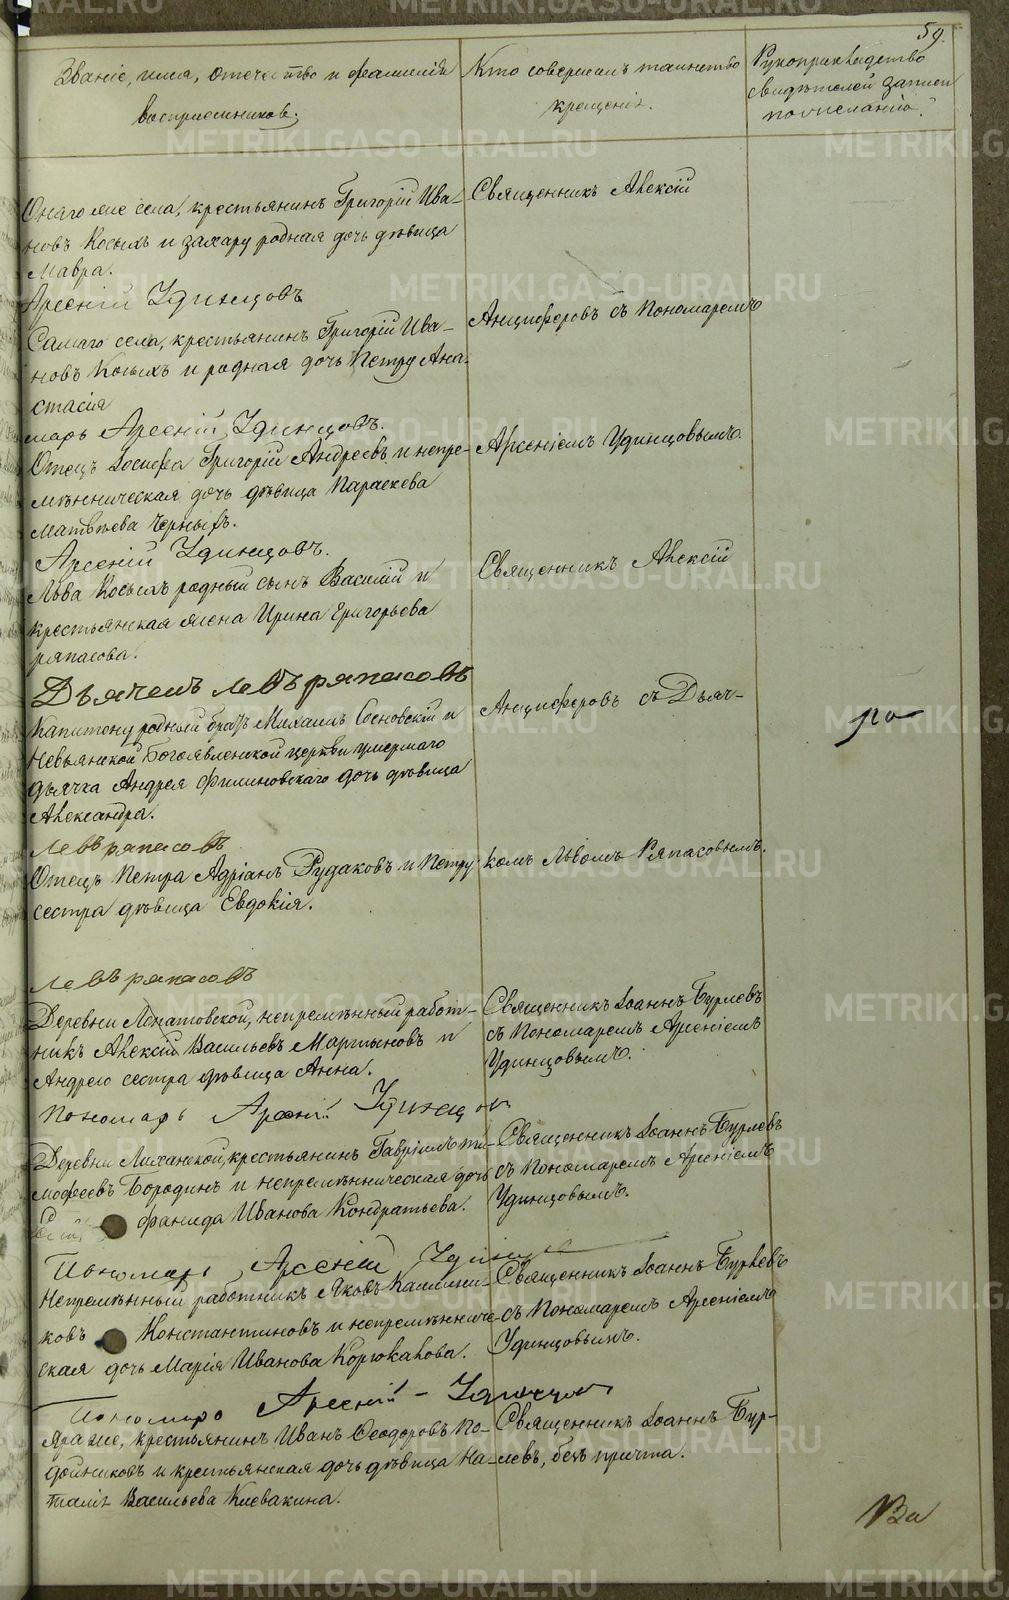 59.
Званіе, имя, отечество и фамилія
воспріемниковъ.
Кто совершалъ таинство
крещенія.
Рукоприкладство
свидѣтелей записи
по желанію.
Онаго же села, крестьянинъ Григорій Ива-
новъ Косыхъ и Захару родная дочь дѣвица
Мавра.
Священникъ Алексій
Арсеній Удинцовъ
Самаго села, крестьянинъ Григорій Ива-
новъ Косыхъ и родная дочь Петру Ана-
стасія
Анциферовъ съ Пономаремъ
марь Арсеній Удинцовъ.
Отецъ Іосифа Григорій Андреевъ и непре-
мѣнническая дочь дѣвица Параскева
Матвѣева Черныхъ.
Арсеніемъ Удинцовымъ.
Арсеній Удинцовъ.
Льва Косыхъ родный сынъ Василій и
крестьянская жена Ирина Григорьева
ряпасова.
Священникъ Алексій
Дьячекъ Левъ ряпасовъ
Капитону родный братъ Михаилъ Сосновскій и
Невьянской Богоявленской церкви умершаго
дьячка Андрея Филиновскаго дочь дѣвица
Александра.
Анциферовъ съ Дьяч-
по
Левъ ряпасовъ
Отецъ Петра Адріанъ Рудаковъ и Петру
сестра дѣвица Евдокія.
комъ Львомъ Ряпасовымъ.
Левъ ряпасовъ
Деревни Лопатовской, непремѣнный работ-
никъ Алексій Васильевъ Мартыновъ и
Андрею сестра дѣвица Анна.
Священникъ Іоаннъ Бурлевъ
съ Пономаремъ Арсеніемъ
Удинцовымъ.
Пономарь Арсеній Удинцовъ
Деревни Лиханской, крестьянинъ Гавріилъ Ти-
мофеевъ Бородинъ и непремѣнническая дочь
фанида Иванова Кондратьева.
Священникъ Іоаннъ Бурлевъ
съ Пономаремъ Арсеніемъ
Удинцовымъ.
Пономарь Арсеній Удинцовъ
Непремѣнный работникъ Яковъ Каллини-
ковъ Константиновъ и непремѣнниче-
ская дочь Марія Иванова Корюкалова.
Священникъ Іоаннъ Бурлевъ
съ Пономаремъ Арсеніемъ
Удинцовымъ.
Пономарь Арсеній Удинцовъ
Яра же, крестьянинъ Иванъ Ѳеодоровъ По-
дойниковъ и крестьянская дочь дѣвица На-
талія Васильева Клевакина.
Священникъ Іоаннъ Бур-
левъ, безъ причта.
METRIKI.GASO-URAL.RU